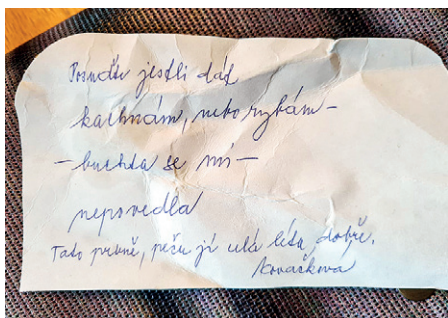 Posuďte jestli dát
kachnám, nebo rybám –
– buchta se mi –
nepovedla
Tato prvně, peču jí celá léta, dobře.
Kováčková